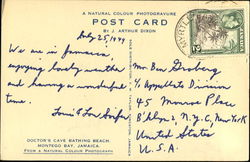 A NATURAL COLOUR PHOTOGRAVURE
POST CARD
BY J. ARTHUR DIXON
July 25, 1949
We are in Jamaica,
enjoying lovely weather
and having a wonderful
time.
Mr Ben Grosberg
% Appellate Division
45 Monroe Place
B'klyn 2, N.Y.C, New York
United States
U.S.A.
DOCTOR'S CAVE BATHING BEACH,
MONTEGO BAY, JAMAICA.
FROM A NATURAL COLOUR PHOTOGRAPH